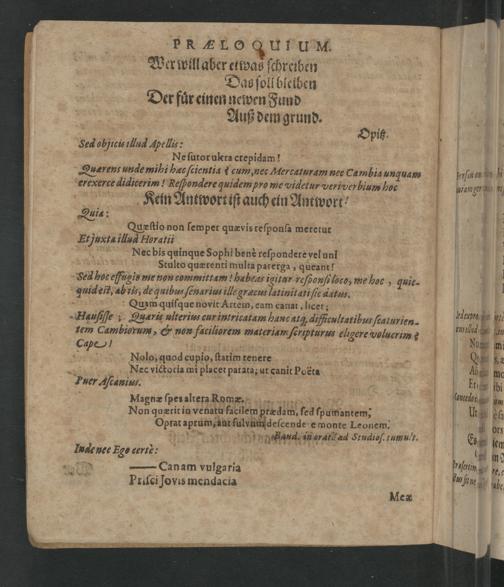 PRÆLOQUIUM.
Wer will aber etwas schreiben
Das soll bleiben
Der für einen newen Fund
Auß dem grund.
Opitz.
Sed objicis illud Apellis:
Ne sutor ultra crepidam!
Quærens unde mihi hæc scientia? cum, nec Mercaturam nec Cambia unquam
exercere didicerim! Respondere quidem pro me videtur veriverbium hoc
Kein Antwort ist auch ein Antwort!
Quia:
Quæstio non semper quævis responsa meretur
Et juxta illud Horatii
Nec bis quinque Sophi benè respondere vel uni
Stulto quærenti multa parerga, queant!
Sed hoc effugio me non committam! habeas igitur responsi loco, me hoc, quic-
quid est, ab iis, de quibus senarius ille græcus latinitati sic datus.
Quam quisque novit Artem, eam canat, licet;
Hausisse; Quæris ulterius cur intricatam hanc atq; difficultatibus scaturien-
tem Cambiorum, & non faciliorem materiam scripturus eligere voluerim?
Cape!
Nolo, quod cupio, statim tenere
Nec victoria mi placet parata; ut canit Poëta
Puer Ascanius.
Magnæ spes altera Romæ.
Non quærit in venatu facilem prædam, sed spumantem,
Optat aprum, aut fulvum descende e monte Leonem.
Baud. in orat. ad Studios. tumult.
Inde nec Ego certè:
—— Canam vulgaria
Prisci Jovis mendacia
Meæ